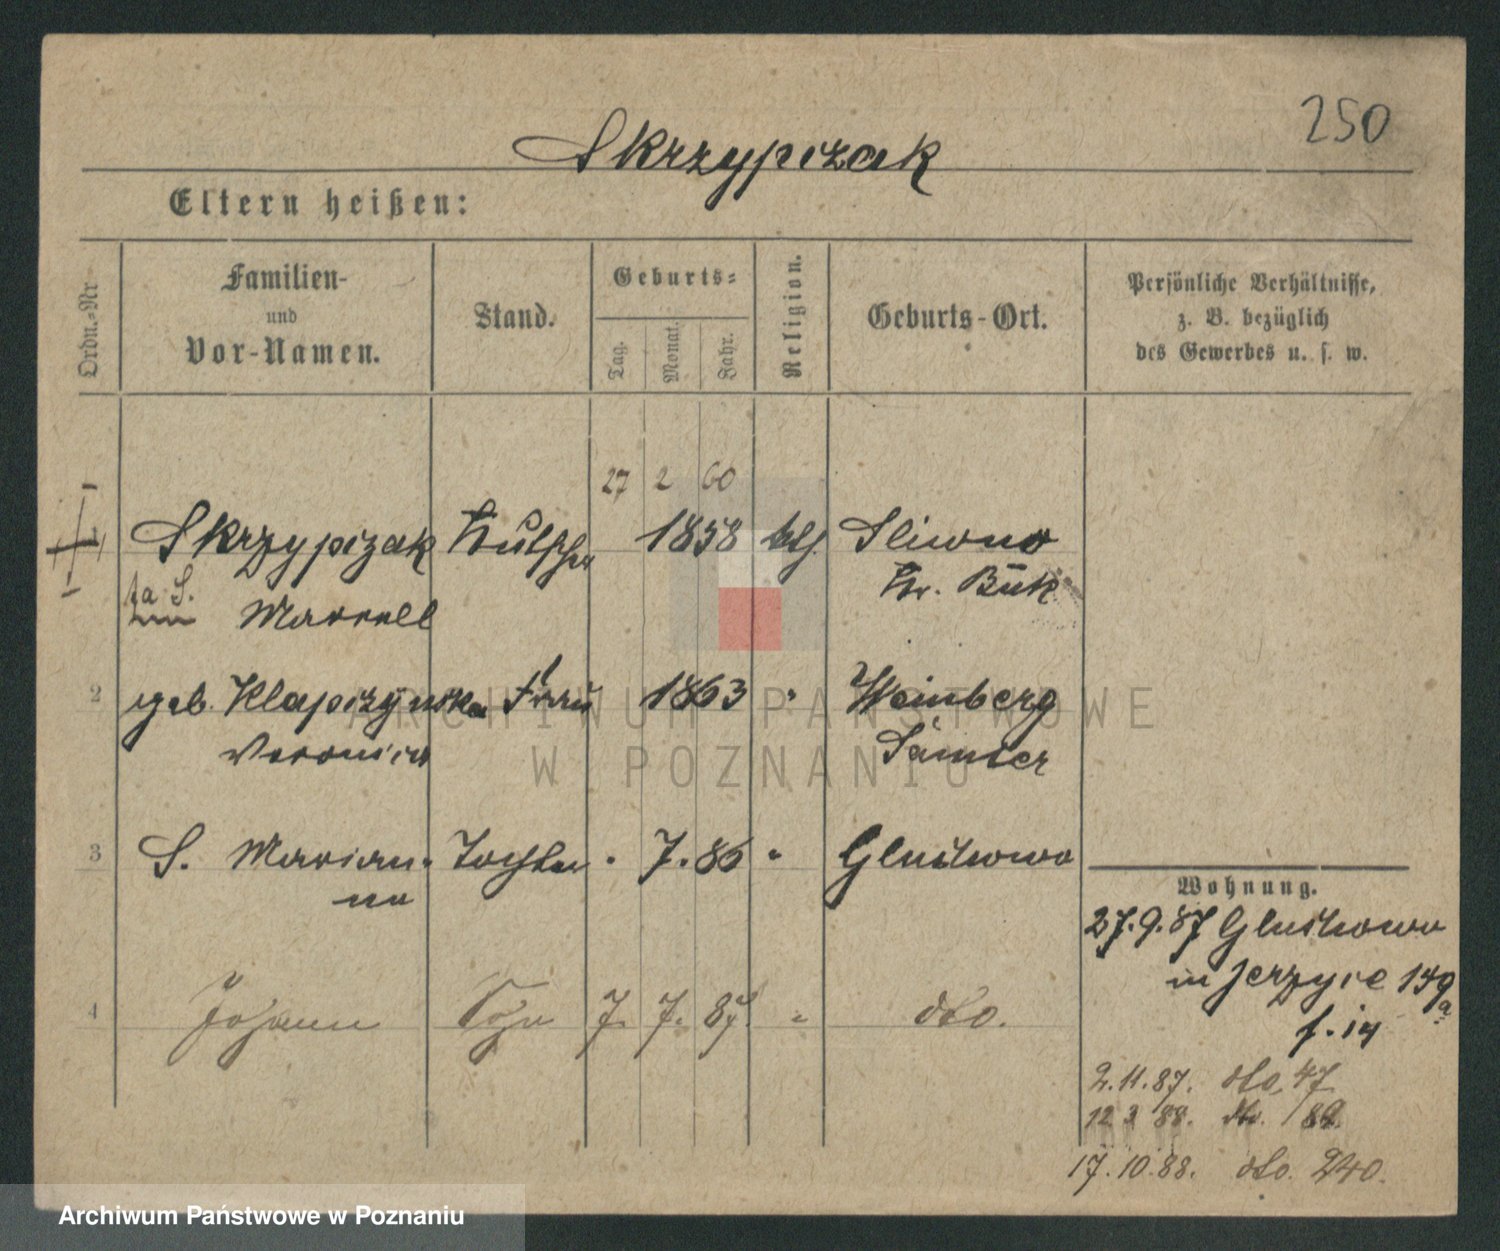 250
Skrzypczak
Eltern heißen:
Ordn.-Nr
Familien-
und
Vor-Namen.
Stand.
Geburts-
Tag.
Monat.
Jahr.
Religion.
Geburts-Ort.
Persönliche Verhältnisse,
z. B. bezüglich
des Gewerbes u. s. w.
27 2 60
1 Skrzypczak Kutscher 1858 kth. Sliwno
Kr. Buk
Marcell
2 geb. Klapczynska Frau 1863 " Weinberg
Veronica Samter
3 S. Marian- Tochter " 7. 86 " Gluchowo
na
Wohnung.
27.9.87 Gluchowo
in Jerzyce 149a
4 Johann Sohn 7. 7. 87. " dto.
2.11.87. dto. 47
12 3 88. dto. 89.
17.10.88. dto. 240.
ARCHIWUM PAŃSTWOWE
W POZNANIU
Archiwum Państwowe w Poznaniu